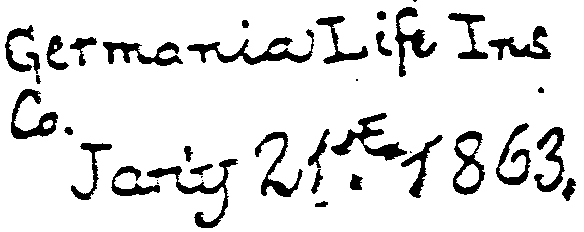 Germania Life Ins
Co.
Jan'y 21st. 1863.